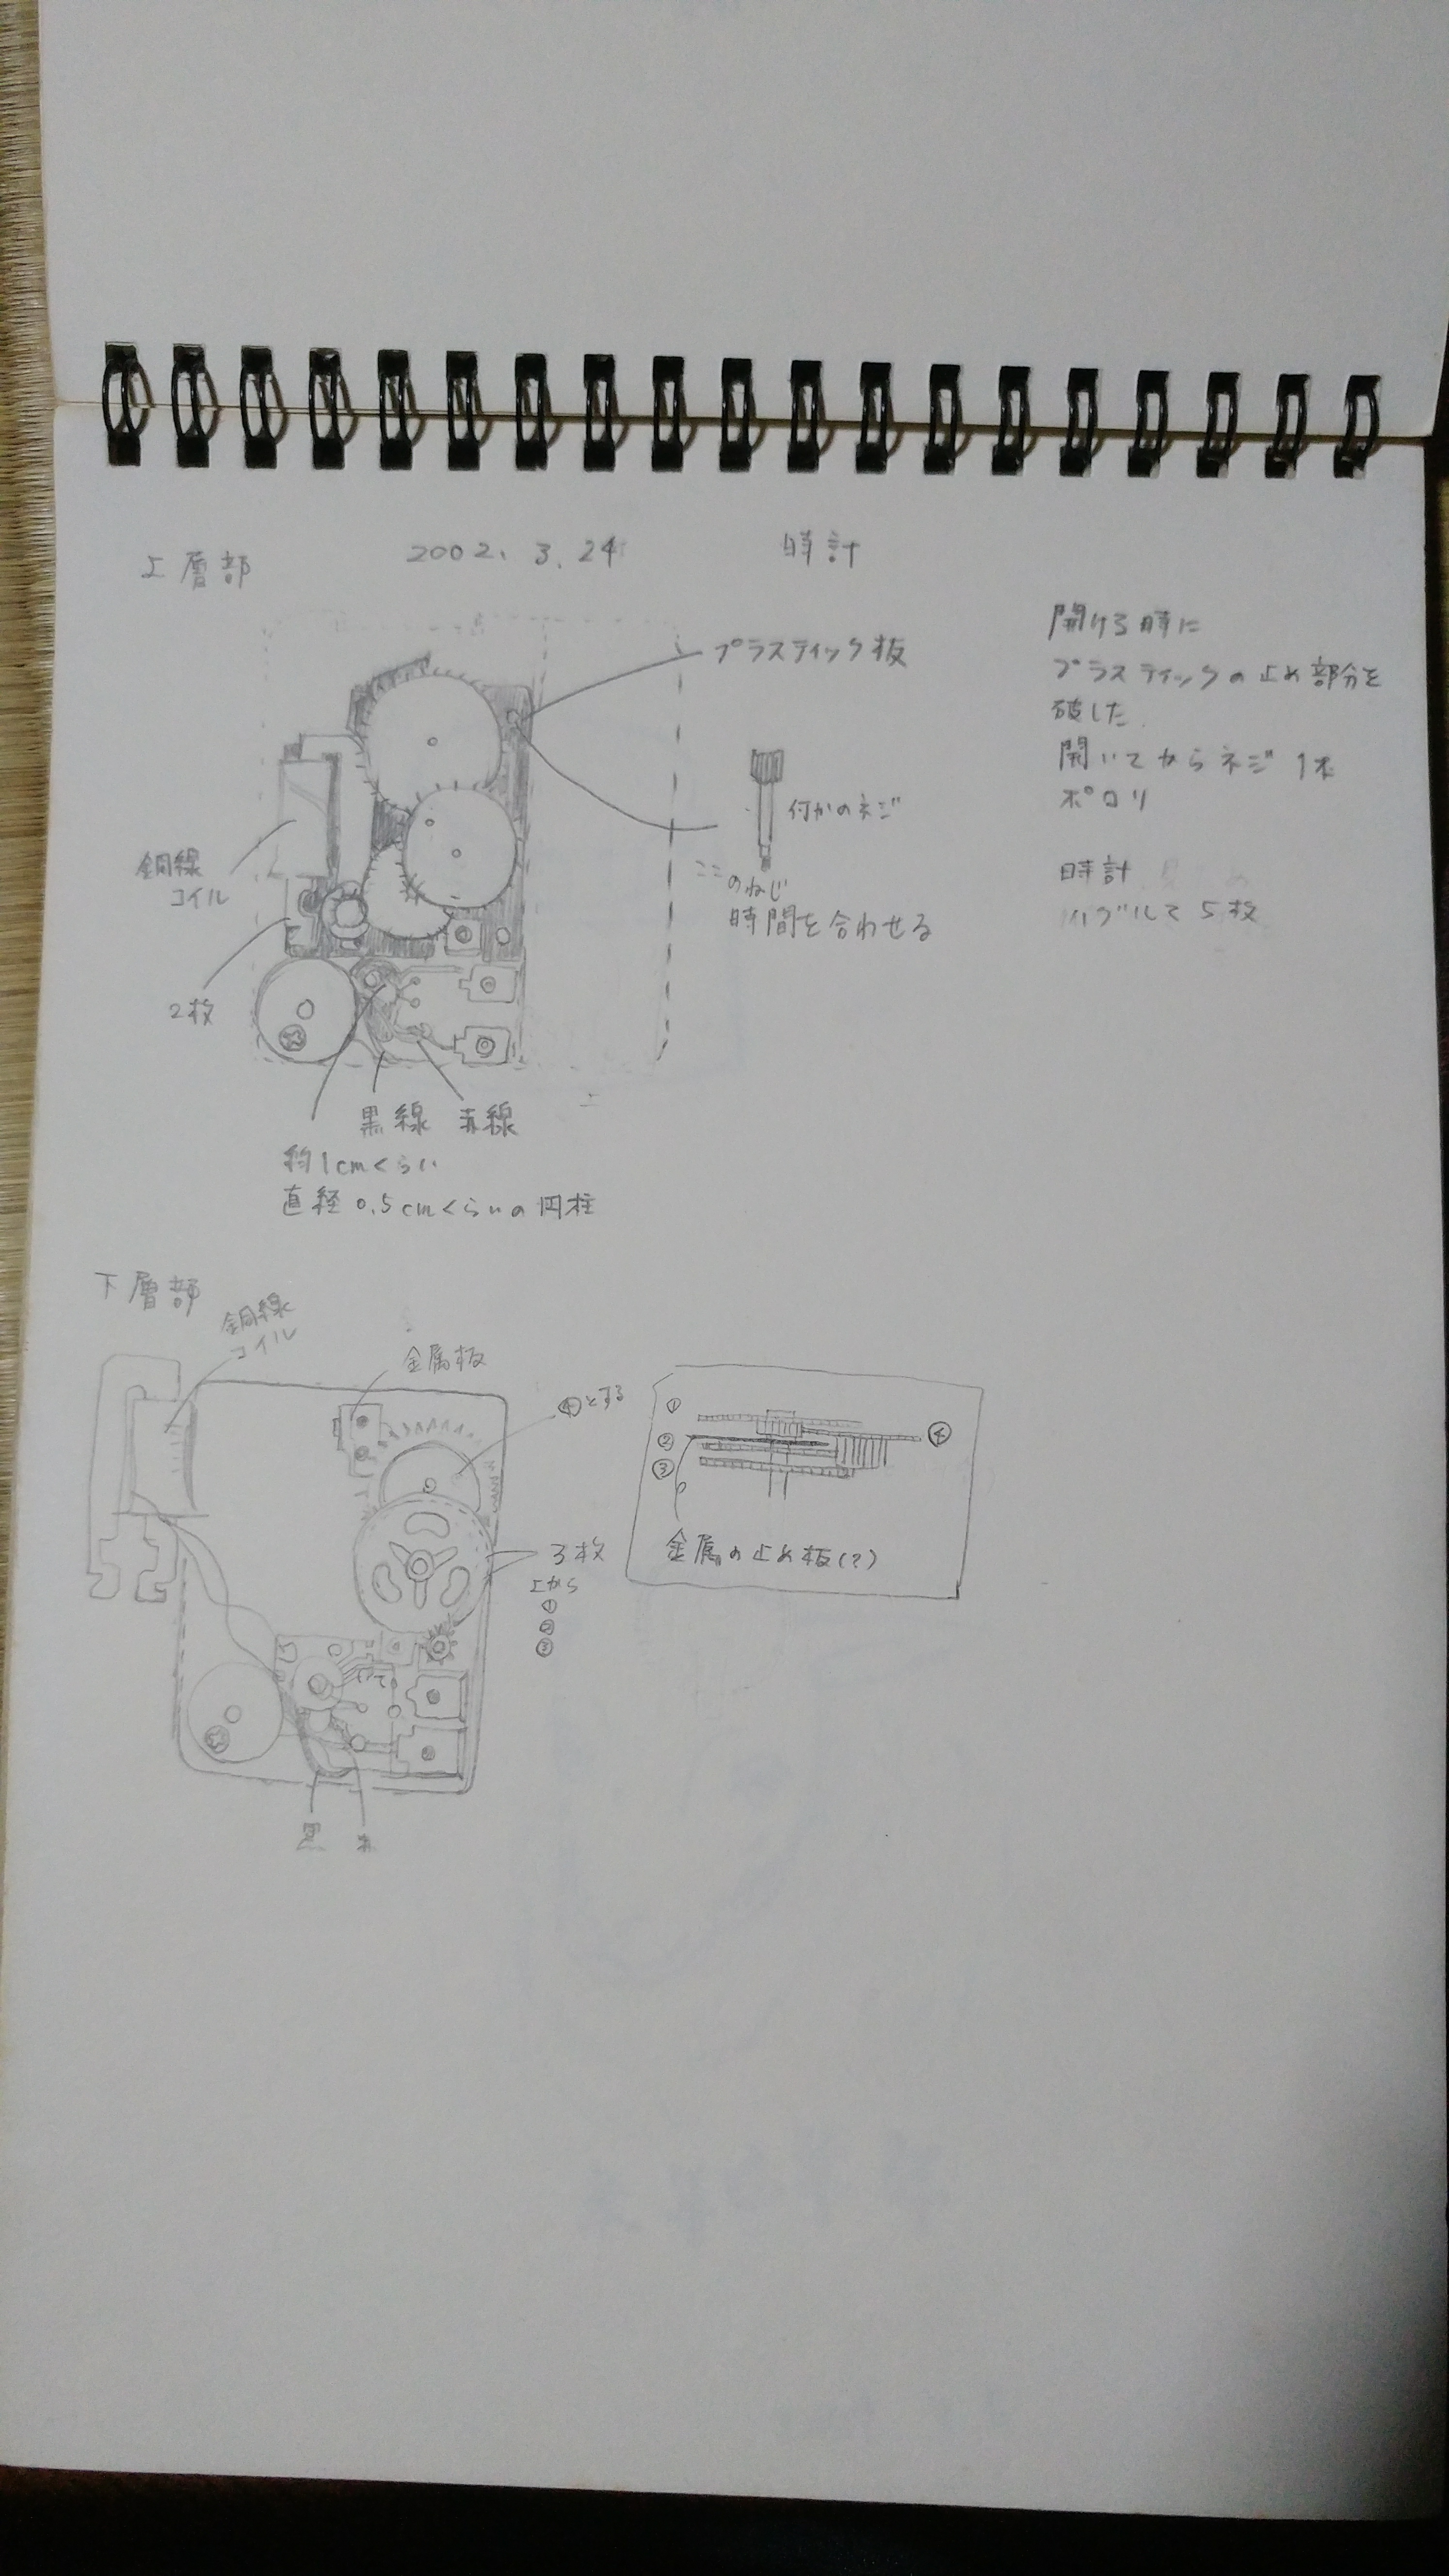 上層部
2002. 3. 24
時計
プラスティック板
開ける時に
プラスティックの止め部分を
破した.
開いてからネジ 1本
ポロリ
時計
5枚
のネジ
ここ
のねじ
時間を合わせる
銅線
コイル
2枚
黒線 赤線
約1cmくらい
直径 0.5cmくらいの円柱
下層部
銅線
コイル
金属板
④とする
3枚
上から
①
②
③
①
②
③
④
金属の止め板(?)
黒
赤